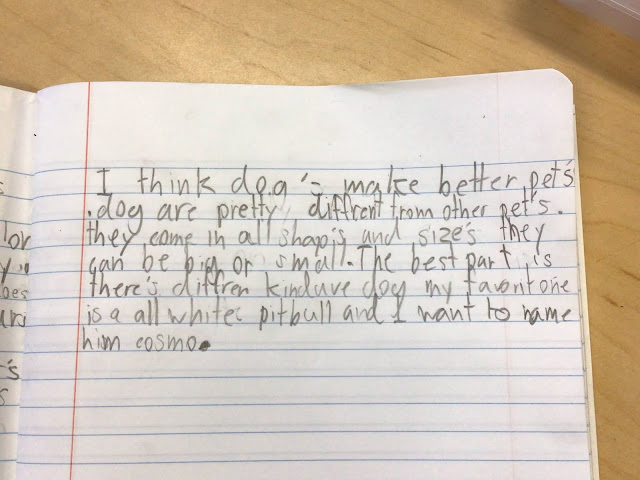 I think dog's make better pet's
. dog are pretty diffrent from other pet's.
they come in all shap's and size's they
can be big or small. The best part is
there's diffren kinduve dog my favorit one
is a all white pitbull and I want to name
him cosmo.
lor
y.
bes
urs
's
s